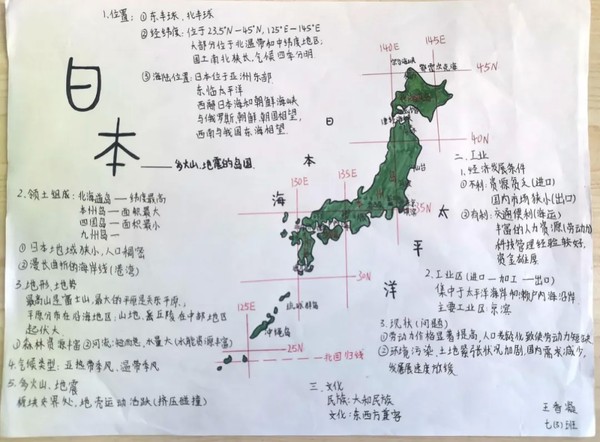 日本
——多火山、地震的岛国
1.位置：①东半球、北半球
②经纬度：位于23.5°N—45°N，125°E—145°E
大部分位于北温带和中纬度地区；
国土南北狭长，气候四季分明
③海陆位置：日本位于亚洲东部
东临太平洋
西隔日本海和朝鲜海峡
与俄罗斯、朝鲜、韩国相望，
西南与我国东海相望.
2.领土组成：北海道岛——纬度最高
本州岛——面积最大
四国岛——面积最小
九州岛——
①日本地域狭小，人口稠密
②漫长曲折的海岸线（港湾）
3.地形、地势
最高山是富士山，最大的平原是关东平原.；
平原分布在沿海地区；山地、丘陵在中部地区
起伏大
①森林资源丰富②河流：短而急，水量大（水能资源丰富）
4.气候类型：亚热带季风、温带季风
5.多火山、地震
板块交界处，地壳运动活跃（挤压碰撞）
二、工业
1.经济发展条件
①不利：资源贫乏（进口）
国内市场狭小（出口）
②有利：交通便利（海运）
丰富的人力资源（劳动力）
科技管理经验较好.
资金雄厚
2.工业区（进口—加工—出口）
集中于太平洋海岸和濑户内海沿岸
主要工业区：京滨
3.现状（问题）
①劳动力价格显著提高，人口老龄化致使劳动力短缺
②环境污染、土地紧张状况加剧，国内需求减少，
发展速度放缓
三、文化
民族：大和民族
文化：东西方兼容
140°E
145°E
45°N
40°N
130°E
135°E
35°N
30°N
125°E
25°N
北回归线
日
本
海
太
平
洋
琉球群岛
冲绳岛
七(3)班